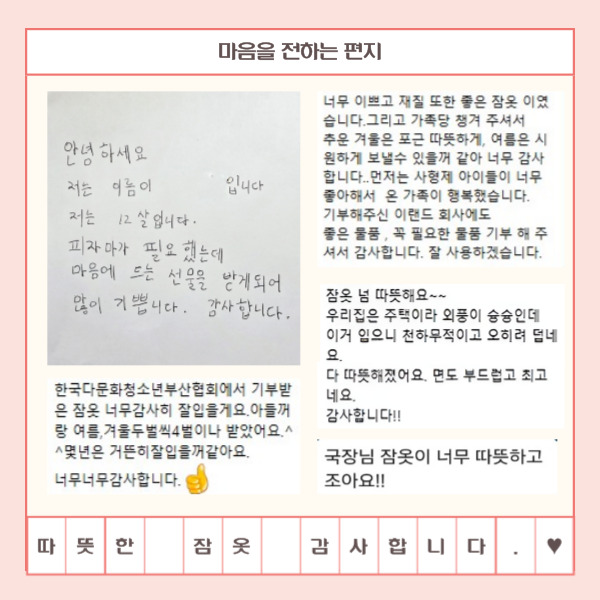 마음을 전하는 편지
안녕하세요
저는 이름이 입니다
저는 12살입니다.
피자마가 필요했는데
마음에 드는 선물을 받게되어
많이 기쁩니다. 감사합니다.
한국다문화청소년부산협회에서 기부받
은 잠옷 너무감사히 잘입을게요.아들꺼
랑 여름,겨울두벌씩4벌이나 받았어요.^
^몇년은 거뜬히잘입을꺼같아요.
너무너무감사합니다.👍
너무 이쁘고 재질 또한 좋은 잠옷 이였
습니다.그리고 가족당 챙겨 주셔서
추운 겨울은 포근 따뜻하게, 여름은 시
원하게 보낼수 있을꺼 같아 너무 감사
합니다..먼저는 사형제 아이들이 너무
좋아해서 온 가족이 행복했습니다.
기부해주신 이랜드 회사에도
좋은 물품 , 꼭 필요한 물품 기부 해 주
셔서 감사합니다. 잘 사용하겠습니다.
잠옷 넘 따뜻해요~~
우리집은 주택이라 외풍이 슝슝인데
이거 입으니 천하무적이고 오히려 덥네
요.
다 따뜻해졌어요. 면도 부드럽고 최고
네요.
감사합니다!!
국장님 잠옷이 너무 따뜻하고
조아요!!
따뜻한 잠옷 감사합니다.♥